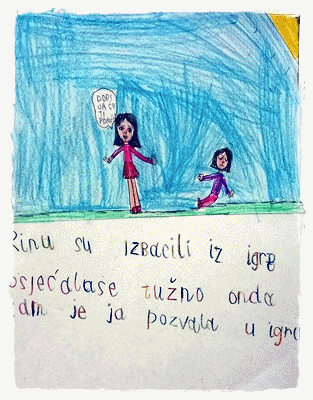 DOĐI
JA ĆU
TI
POMOĆ
Rinu su IZBACILI IZ igre
osjećalase tužno onda
sam je ja pozvala u igru